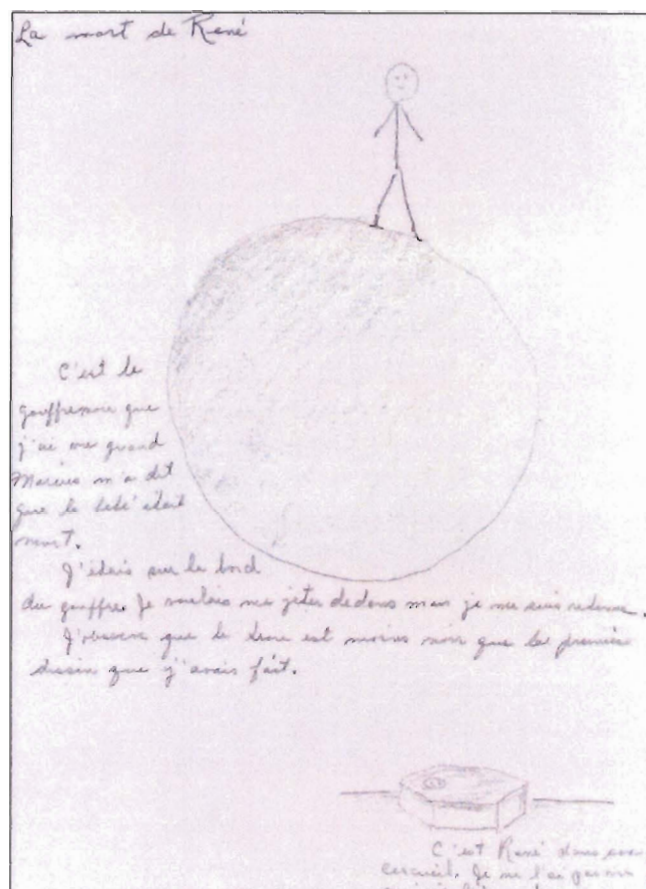 La mort de René
C'est le
gouffre noir que
j'ai vu quand
m'a dit
que le bébé était
mort.
J'étais sur le bord
du gouffre. Je voulais me jeter dedans mais je me suis retenue.
J'observe que le est moins noir que le premier
dessin que j'avais fait.
C'est René dans son
cercueil. Je ne l'ai pas vu